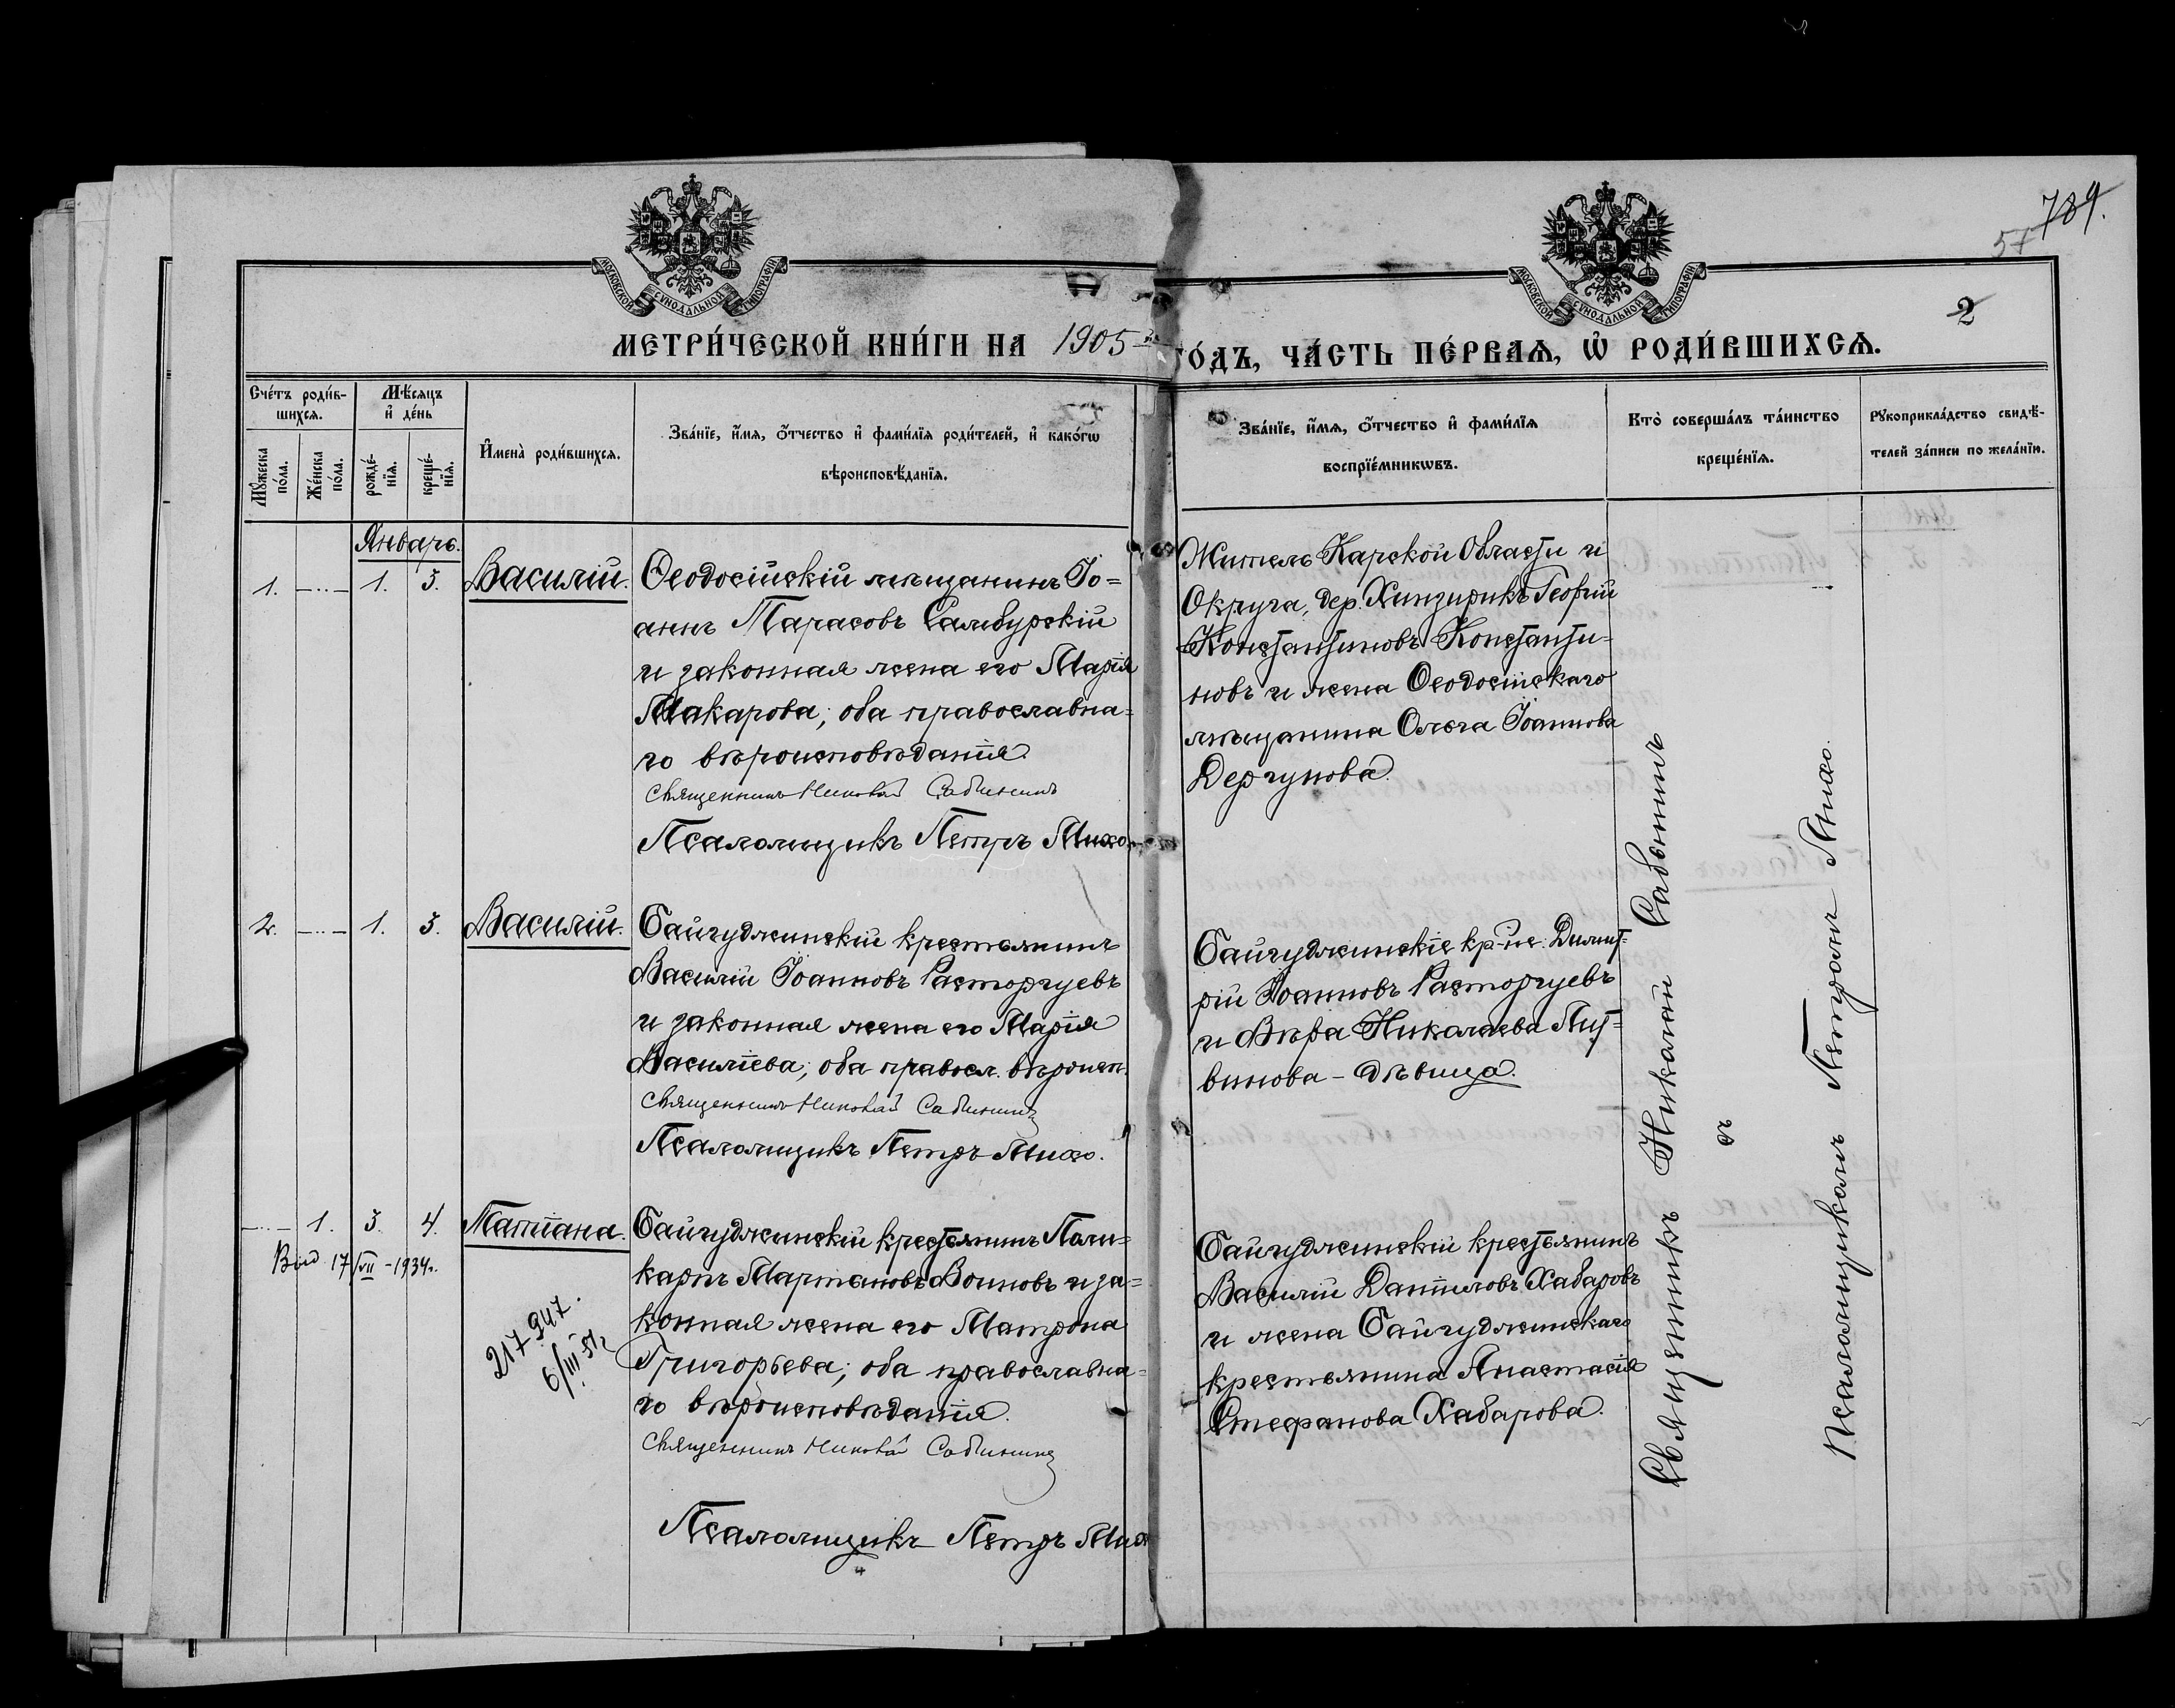 789.
57
2
МОСКОВСКОЙ СѴНОДАЛЬНОЙ ТИПОГРАФІИ
МОСКОВСКОЙ СѴНОДАЛЬНОЙ ТИПОГРАФІИ
МЕТРИ́ЧЕСКОЙ КНИ́ГИ НА 1905 ГО́ДЪ, ЧА́СТЬ ПЕ́РВАЯ, Ѡ҆ РОДИ́ВШИХСЯ.
Сче́тъ роди́в-
шихся.
Мꙋ́жеска
по́ла.
Же́нска
по́ла.
Мѣ́сяцъ
и҆ де́нь
рожде́-
нїя.
креще́-
нїя.
И҆мена̀ роди́вшихся.
Зва́нїе, и҆́мя, ѻ҆́тчество и҆ фами́лїя роди́телей, и҆ како́гѡ
вѣроисповѣ́данїя.
Зва́нїе, и҆́мя, ѻ҆́тчество и҆ фами́лїя
воспрїе́мникѡвъ.
Кто̀ соверша́лъ та́инство
креще́нїя.
Рꙋкоприкла́дство свидѣ́-
телей за́писи по жела́нїи.
Январь.
1. 1. 3. Василій.
Ѳеодосійскій мѣщанинъ Іо=
аннъ Тарасовъ Самбурскій
и законная жена его Марія
Макарова; оба православна=
го вѣроисповѣданія.
Священникъ Николай
Псаломщикъ Петръ
Житель Карской Области и
Округа, дер. Георгій
Константиновъ Константи-
новъ и жена Ѳеодосійскаго
мѣщанина Ольга Іоаннова
Дергунова.
2. 1. 3. Василій.
Байгуджинскій крестьянинъ
Василій Іоанновъ Расторгуевъ
и законная жена его Марія
Василіева; оба правосл. вѣроисп.
Священникъ Николай
Псаломщикъ Петръ
Байгуджинскіе кр-не: Димит-
рій Іоанновъ Расторгуевъ
и Вѣра Николаева Лит-
винова - дѣвица.
1. 3. 4. Татіана.
17/VII-1934г.
217947.
6/III 51г
Байгуджинскій крестьянинъ Поли=
карпъ Мартиновъ Воиновъ и за=
конная жена его Матрона
Григорьева; оба православна=
го вѣроисповѣданія.
Священникъ Николай
Псаломщикъ Петръ
Байгуджинскій крестьянинъ
Василій Даніиловъ Хабаровъ
и жена Байгуджинскаго
крестьянина Анастасія
Стефанова Хабарова.
Священникъ Николай
съ
Псаломщикомъ Петромъ